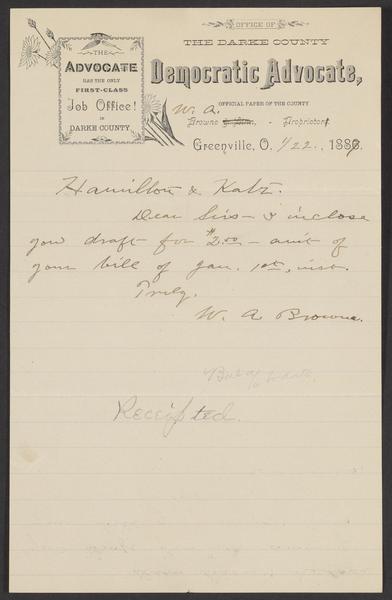 OFFICE OF
THE DARKE COUNTY
Democratic Advocate,
OFFICIAL PAPER OF THE COUNTY
THE
ADVOCATE
HAS THE ONLY
FIRST-CLASS
Job Office!
IN
DARKE COUNTY.
W. A.
Browne Proprietor
Greenville, O. 1/22., 1889
Hamilton & Katz.
Dear Sirs - I inclose
you draft for $2.00 - amt of
your bill of Jan. 1st, inst.
Truly,
W. A. Browne.
Receipted.